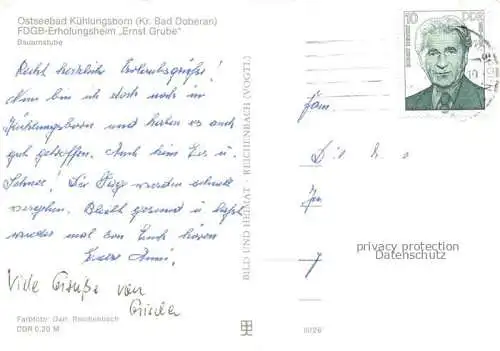 Ostseebad Kühlungsborn (Kr. Bad Doberan)
FDGB-Erholungsheim „Ernst Grube"
Bauernstube
Recht herzliche Urlaubsgrüße!
Nun bin ich doch noch in
Kühlungsborn und haben es auch
gut getroffen. Auch kein Eis u.
Schnee! Die Tage werden schnell
vergehen. Bleibt gesund u. laßt
wieder mal von Euch hören
Eure Anni.
Viele Grüße von
Farbfoto: Darr, Reichenbach
DDR 0,20 M
BILD UND HEIMAT · REICHENBACH (VOGTL)
10
DDR
Fam.
privacy protection
Datenschutz